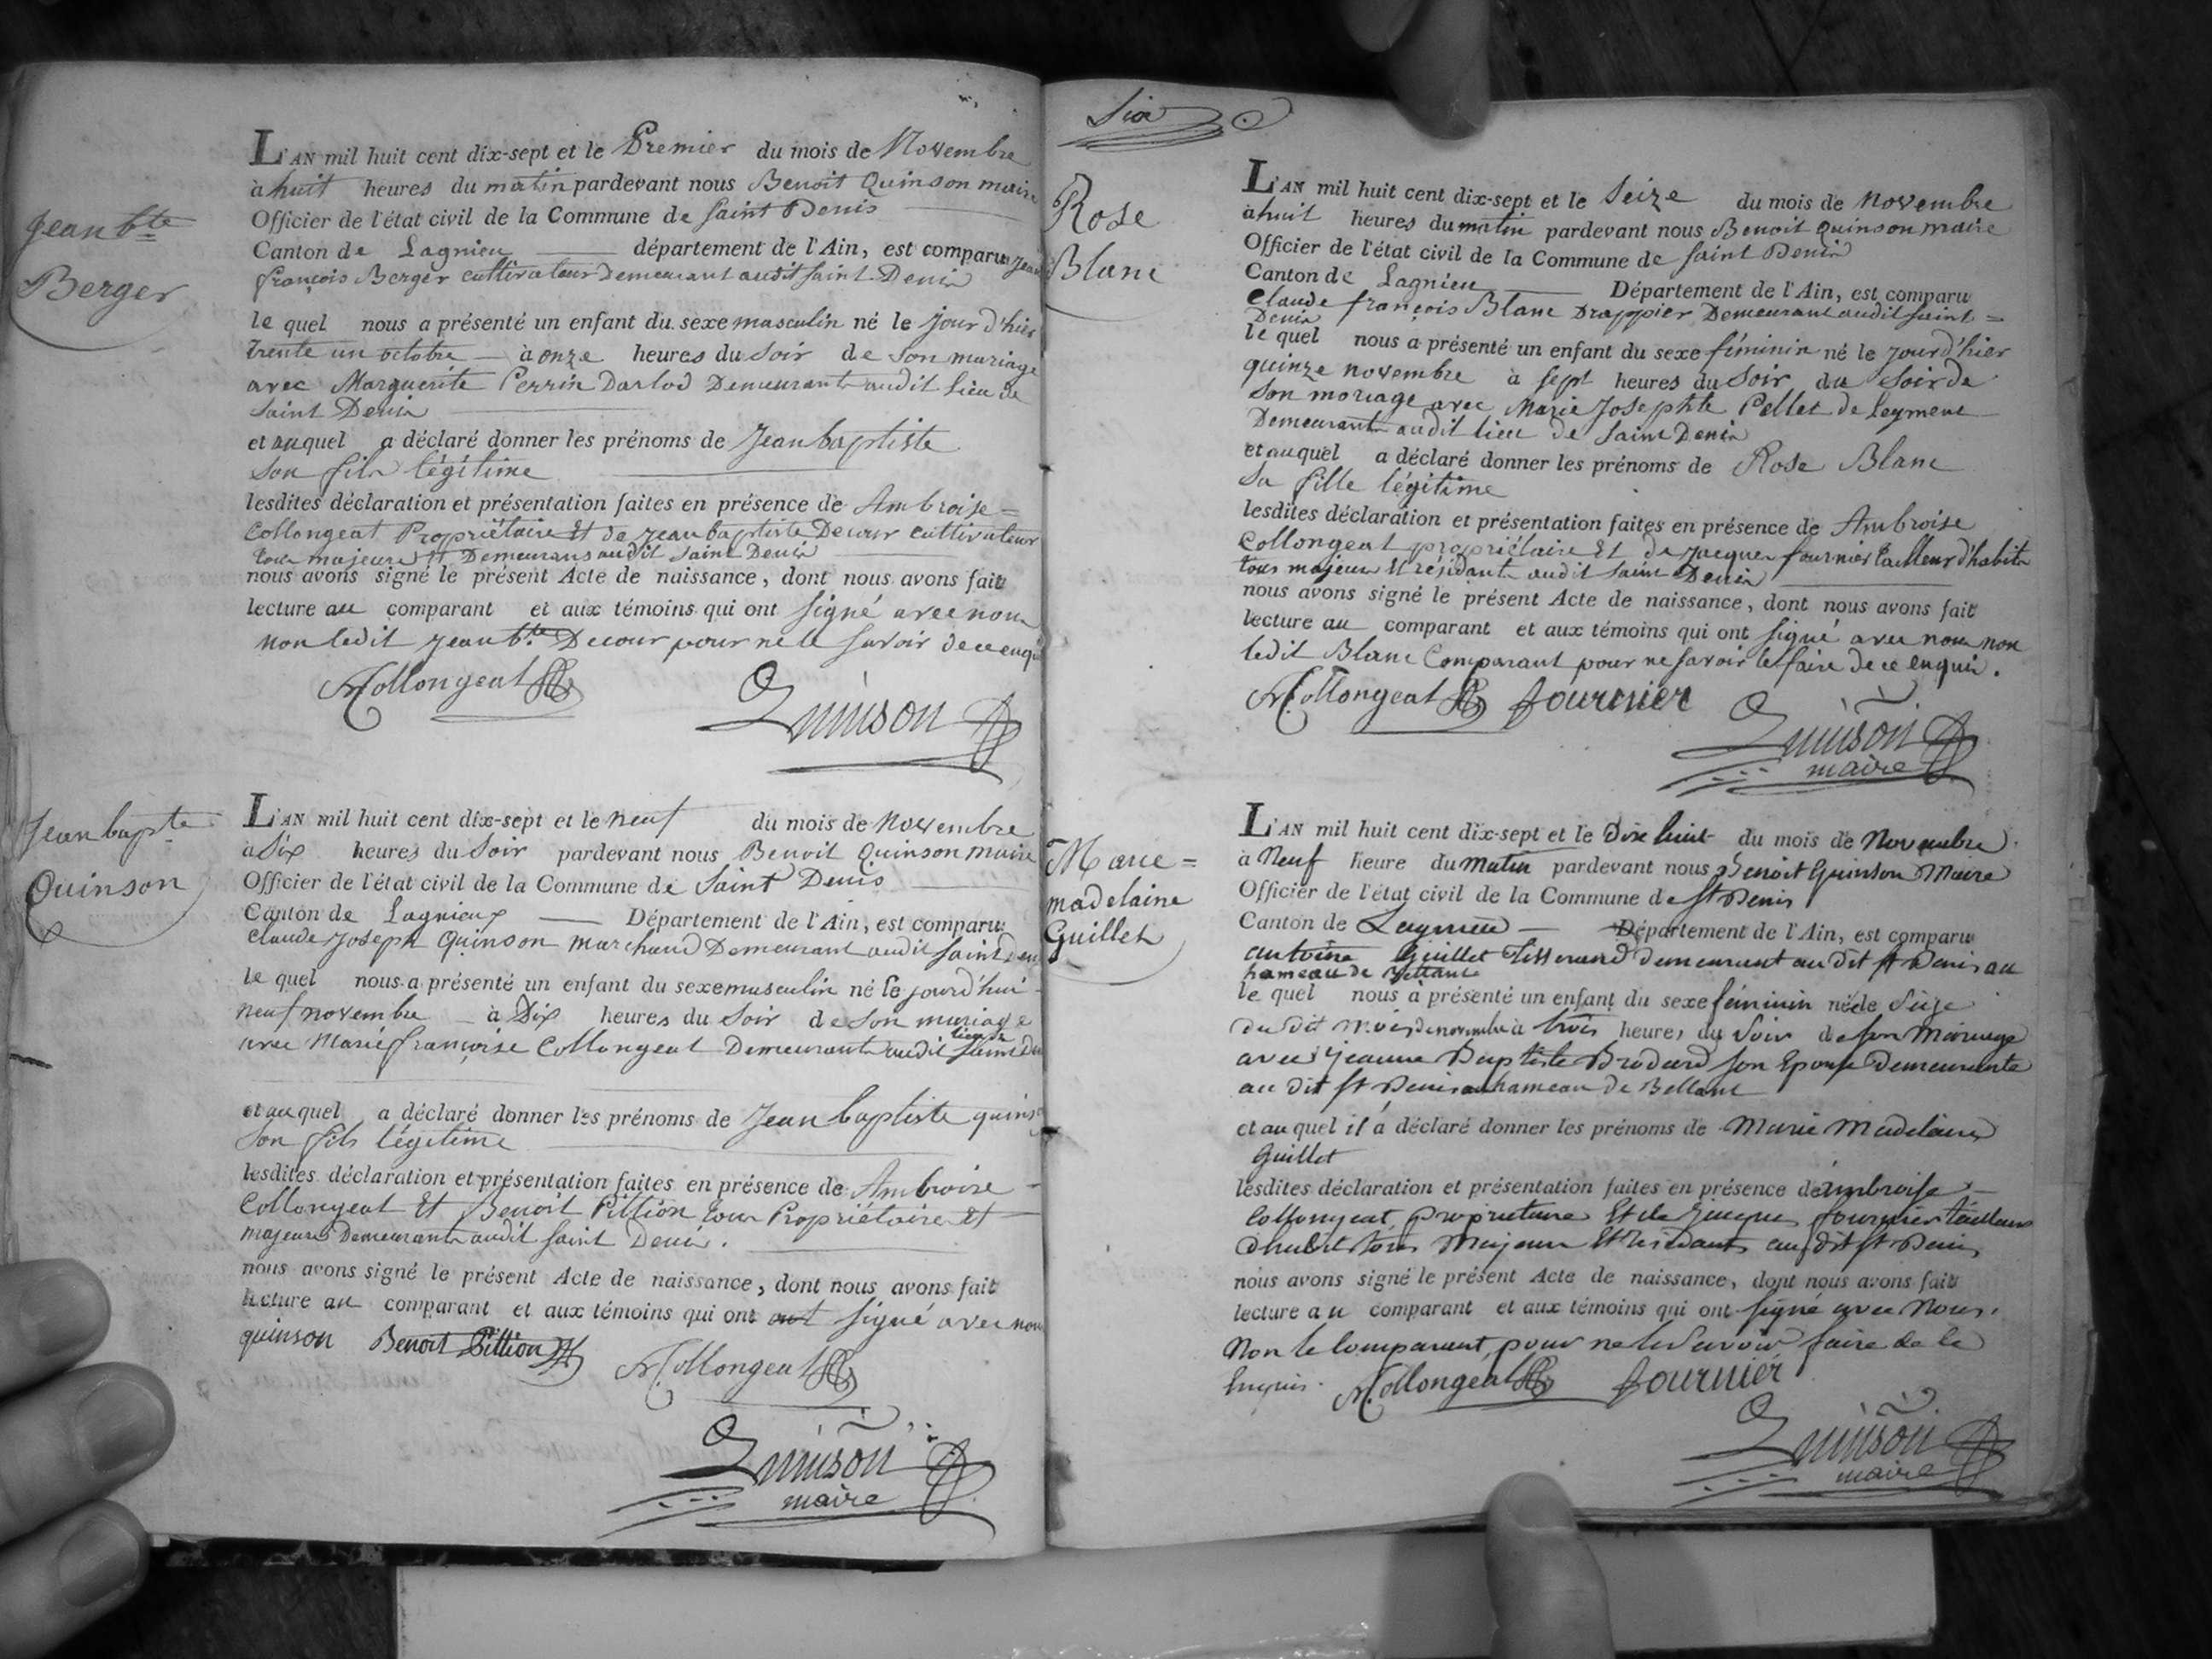 Jean bte
Berger
L'AN mil huit cent dix-sept et le Premier du mois de Novembre
à huit heures du matin pardevant nous Benoit Quinson maire
Officier de l'état civil de la Commune de Saint Denis
Canton de Lagnieu département de l'Ain, est comparu Jean
françois Berger cultivateur Demeurant audit Saint Denis
le quel nous a présenté un enfant du sexe masculin né le jour d'hier
trente un octobre à onze heures du Soir de son mariage
avec Marguerite Perrin Darlod Demeurante audit lieu de
Saint Denis
et auquel a déclaré donner les prénoms de Jean baptiste
Son fils légitime
lesdites déclaration et présentation faites en présence de Ambroise =
Collongeat Propriétaire Et de Jean baptiste Decour cultivateur
tous majeurs Et Demeurans audit Saint Denis
nous avons signé le présent Acte de naissance, dont nous avons fait
lecture au comparant et aux témoins qui ont signé avec nous
non ledit Jean bte Decour pour ne le savoir de ce enquis
A Collongeat
Quinson
Jean bapte
Quinson
L'AN mil huit cent dix-sept et le neuf du mois de Novembre
à Six heures du Soir pardevant nous Benoit Quinson maire
Officier de l'état civil de la Commune de Saint Denis
Canton de Lagnieux Département de l'Ain, est comparu
Claude Joseph Quinson marchand Demeurant audit Saint Den
le quel nous a présenté un enfant du sexe masculin né le jourd'hui
neuf novembre à Dix heures du Soir de Son mariage
avec Marie françoise Collongeat Demeurante audit lieu de Saint Den
et au quel a déclaré donner les prénoms de Jean baptiste quins
Son fils légitime
lesdites déclaration et présentation faites en présence de Ambroise
Collongeat Et Benoit Pittion tous Propriétaires Et
majeurs Demeurants audit Saint Denis.
nous avons signé le présent Acte de naissance, dont nous avons fait
lecture au comparant et aux témoins qui ont ont signé avec nous
quinson Benoit Pittion A Collongeat
Quinson
maire
Six
Rose
Blanc
L'AN mil huit cent dix-sept et le Seize du mois de Novembre
à huit heures du matin pardevant nous Benoit Quinson maire
Officier de l'état civil de la Commune de Saint Denis
Canton de Lagnieu Département de l'Ain, est comparu
Claude françois Blanc Drappier Demeurant audit Saint =
Denis
le quel nous a présenté un enfant du sexe féminin né le jour d'hier
quinze novembre à sept heures du Soir du Soir de
Son mariage avec Marie Josephte Pellet de Leyment
Demeurante audit lieu de Saint Denis
et auquel a déclaré donner les prénoms de Rose Blanc
Sa fille légitime
lesdites déclaration et présentation faites en présence de Ambroise
Collongeat propriétaire Et de Jacques fournier tailleur d'habits
tous majeurs Et résidants audit Saint Denis
nous avons signé le présent Acte de naissance, dont nous avons fait
lecture au comparant et aux témoins qui ont signé avec nous non
ledit Blanc Comparant pour ne savoir le faire de ce enquis.
A Collongeat fournier
Quinson
maire
Marie =
madelaine
Guillet
L'AN mil huit cent dix-sept et le Dix huit du mois de Novembre
à Neuf heure du Matin pardevant nous Benoit Quinson Maire
Officier de l'état civil de la Commune de St Denis
Canton de Lagnieu Département de l'Ain, est comparu
antoine Guillet Tisserand demeurant au dit St Denis au
hameau de
le quel nous à présenté un enfant du sexe féminin né le Seize
du dit mois de novembre à trois heures du Soir de son Mariage
avec jeanne Baptiste Brodard son Epouse Demeurante
au dit St Denis au hameau de
et au quel il a déclaré donner les prénoms de Marie Madelaine
Guillet
lesdites déclaration et présentation faites en présence de ambroise
Collongeat, propriétaire Et de Jacques fournier tailleur
d'habit tous Majeur Et residants au dit St Denis
nous avons signé le présent Acte de naissance, dont nous avons fait
lecture au comparant et aux témoins qui ont signé avec Nous,
Non le comparant, pour ne le savoir faire de ce
Enquis. A Collongeat fournier
Quinson
maire